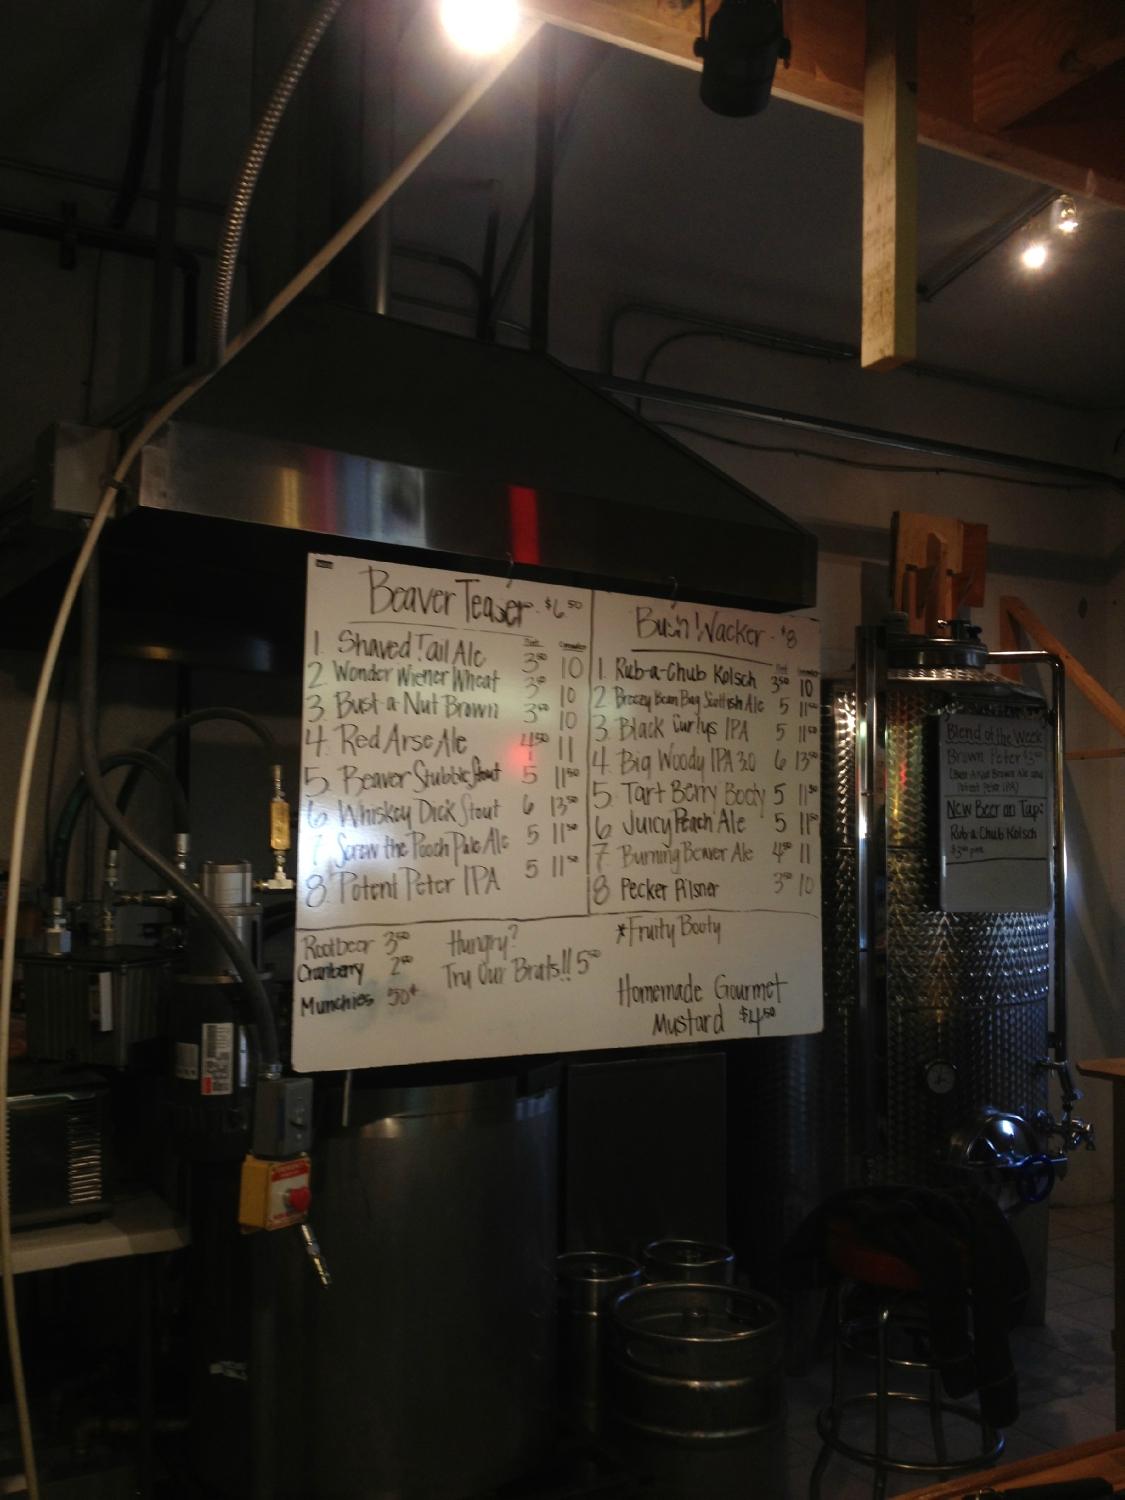 Beaver Teaser. $6.50
Pint Growler
1. Shaved Tail Ale 3.50 10
2. Wonder Wiener Wheat 3.50 10
3. Bust-a-Nut Brown 3.50 10
4. Red Arse Ale 4.50 11
5. Beaver Stubble Stout 5 11.50
6. Whiskey Dick Stout 6 13.50
7. Screw the Pooch Pale Ale 5 11.50
8. Potent Peter IPA 5 11.50
Bush Wacker. $8
Pint Growler
1. Rub-a-Chub Kolsch 3.50 10
2. Breezy Bean Bag Scottish Ale 5 11.50
3. Black Curlys IPA 5 11.50
4. Big Woody IPA 3.0 6 13.50
5. Tart Berry Booty 5 11.50
6. Juicy Peach Ale 5 11.50
7. Burning Beaver Ale 4.50 11
8 Pecker Pilsner 3.50 10
Rootbeer 3.50
Cranberry 2.00
Munchies 50¢
Hungry?
Try Our Brats!! 5.00
*Fruity Booty
Homemade Gourmet
Mustard $4.50
Blend of the Week
Brown Peter $3.50
(Bust-A-Nut Brown Ale and
Potent Peter IPA)
New Beer on Tap:
Rub a Chub Kolsch
$3.50 pint